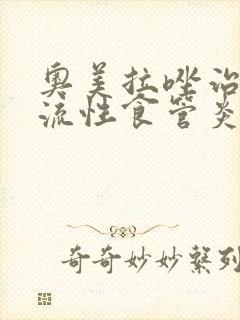 奥美拉唑治
流性食管炎
奇奇妙妙系列